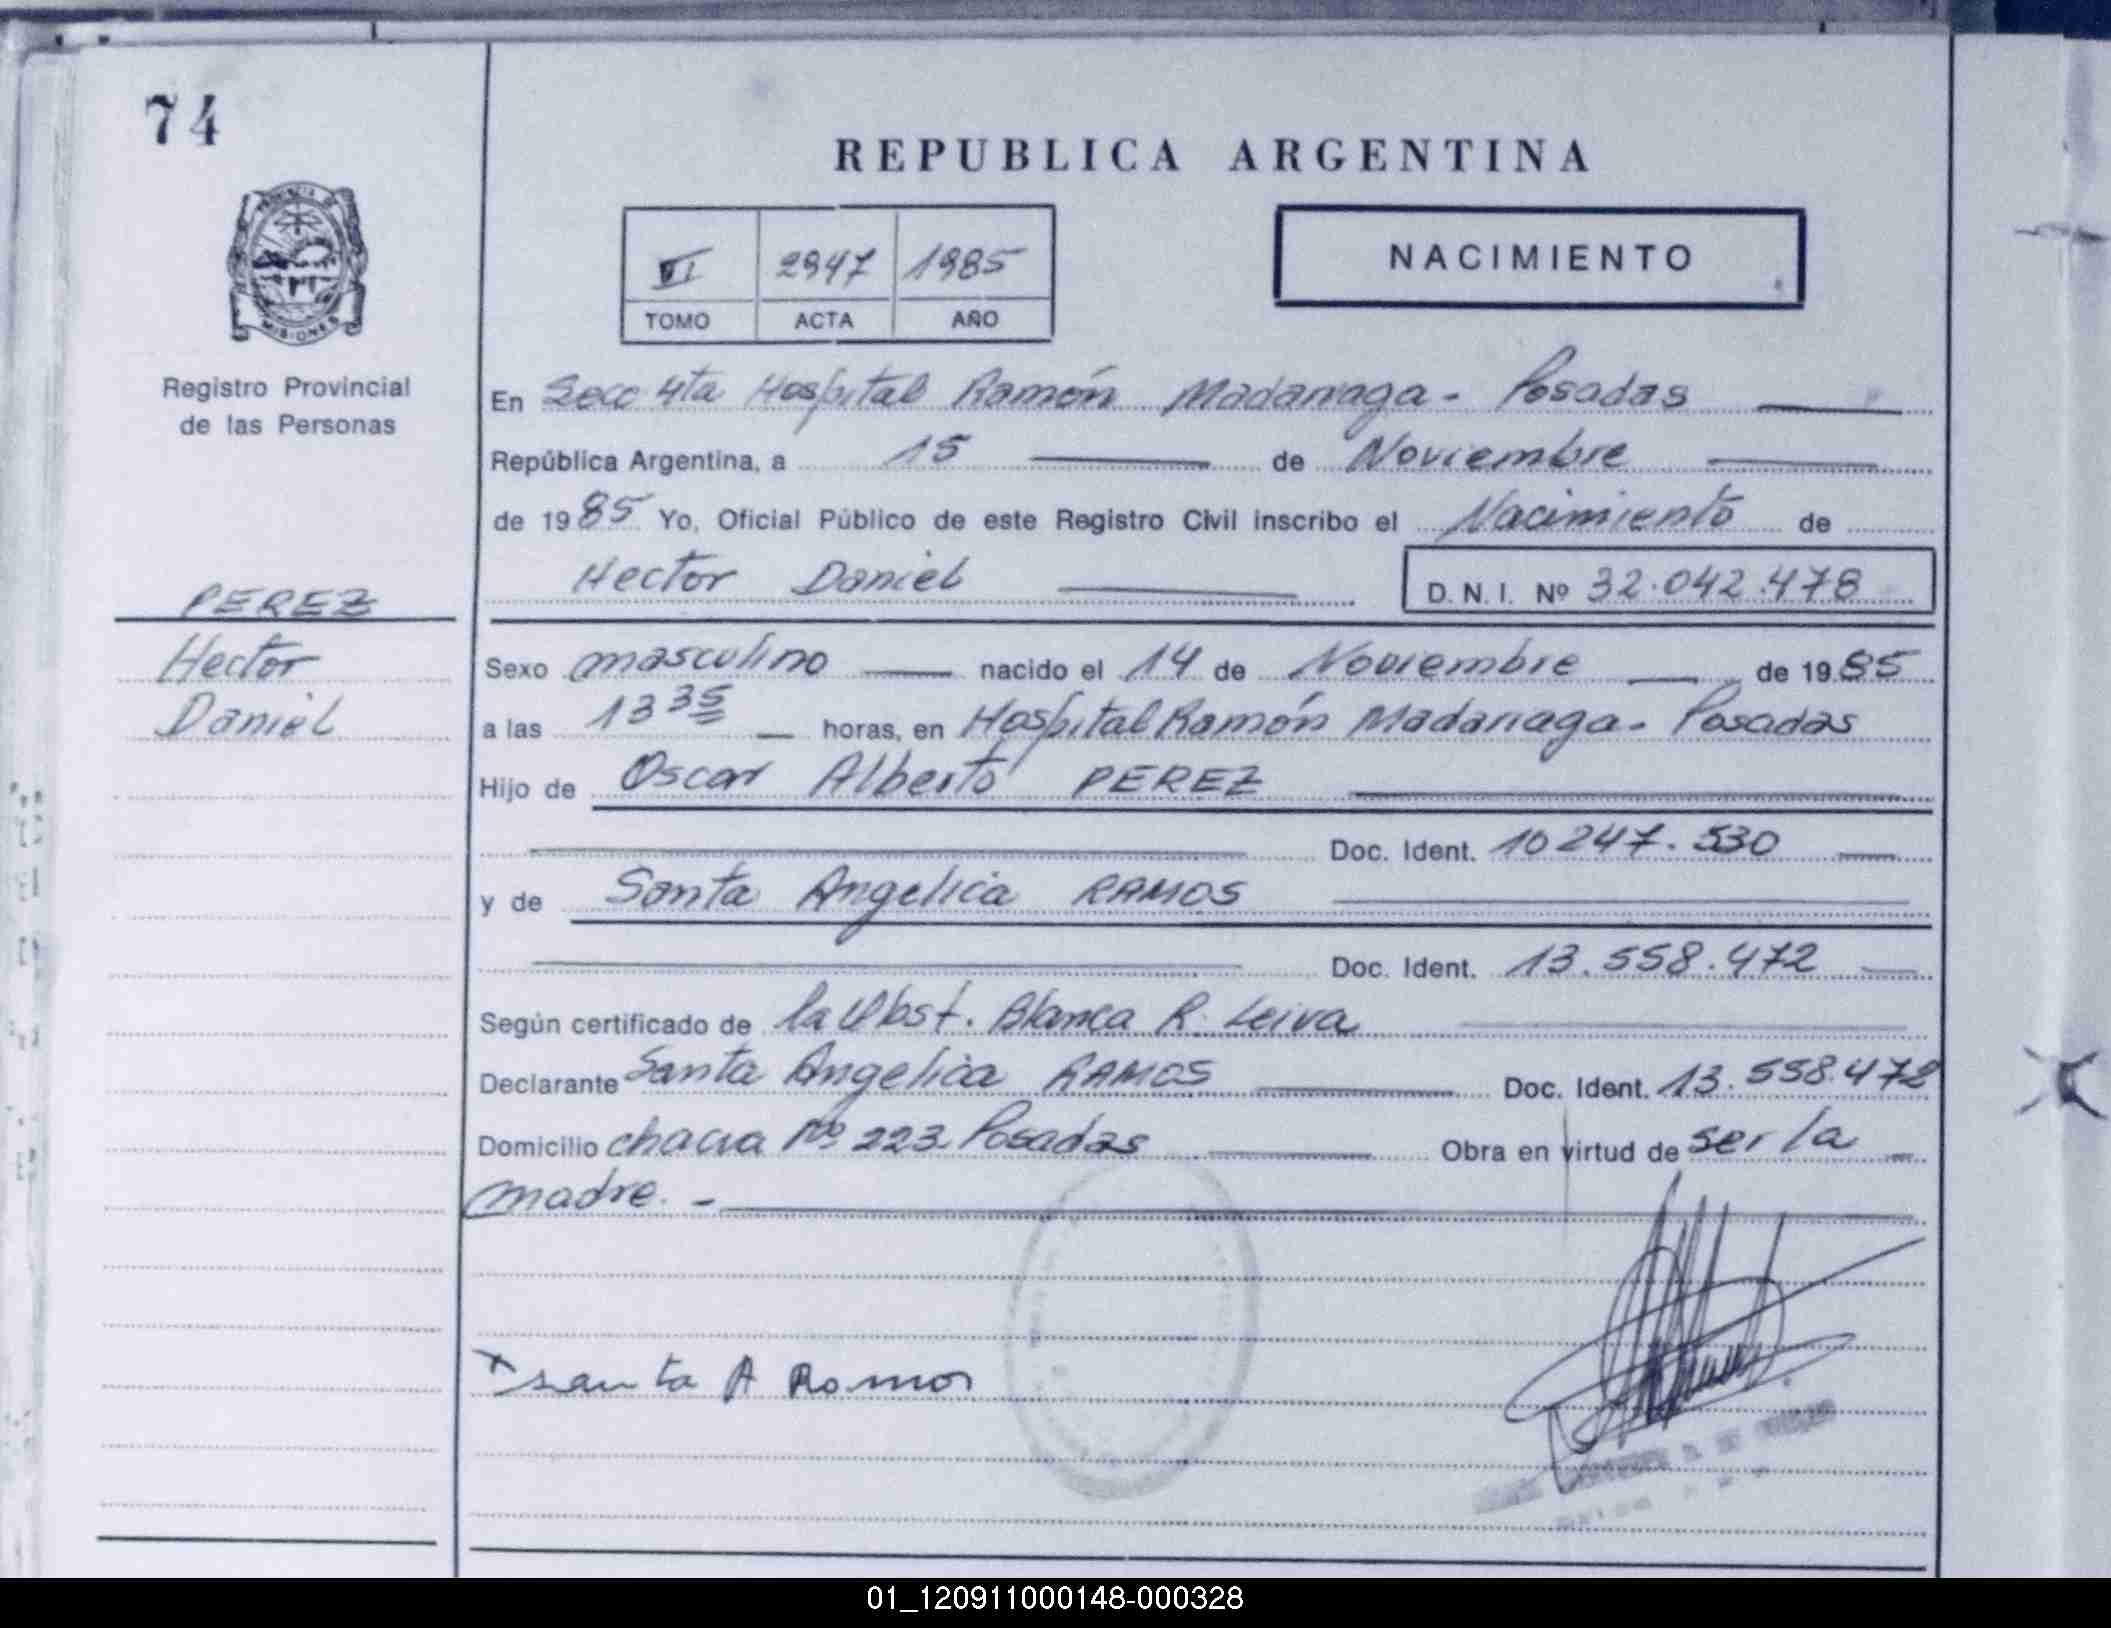 74
REPUBLICA ARGENTINA
PROVINCIA D
MISIONES
Registro Provincial
de las Personas
VI 2947 1985
TOMO ACTA AÑO
NACIMIENTO
En Secc 4ta Hospital Ramón Madariaga - Posadas
República Argentina, a 15 de Noviembre
de 1985 Yo, Oficial Público de este Registro Civil inscribo el Nacimiento de
Hector Daniel D.N.I. Nº 32.042.478
PEREZ
Hector
Daniel
Sexo masculino nacido el 14 de Noviembre de 1985
a las 13 35 horas, en Hospital Ramón Madariaga - Posadas
Hijo de Oscar Alberto PEREZ
Doc. Ident. 10247.530
y de Santa Angelica RAMOS
Doc. Ident. 13.558.472
Según certificado de la Obst. Blanca R. Leiva
Declarante Santa Angelica RAMOS Doc. Ident. 13.558.472
Domicilio chacra Nº 223 Posadas Obra en virtud de ser la
madre. -
x santa A Ramos
01_120911000148-000328